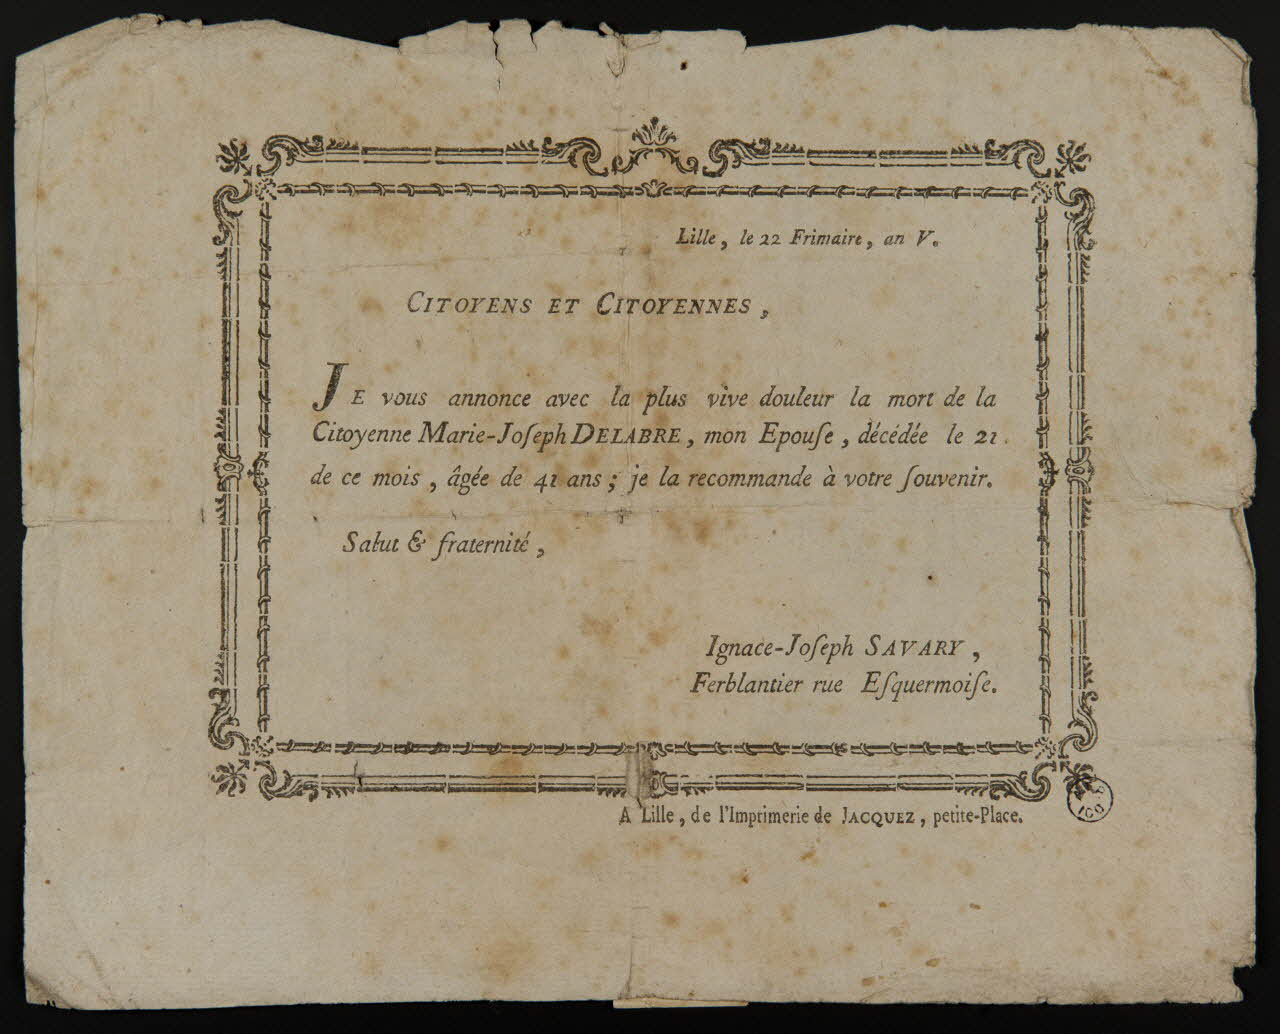 Lille, le 22 Frimaire, an V.
CITOYENS ET CITOYENNES,
JE vous annonce avec la plus vive douleur la mort de la
Citoyenne Marie-Joſeph DELABRE, mon Epouſe, décédée le 21.
de ce mois, âgée de 41 ans; je la recommande à votre ſouvenir.
Salut & fraternité,
Ignace-Joſeph SAVARY,
Ferblantier rue Eſquermoiſe.
A Lille, de l'Imprimerie de JACQUEZ, petite-Place.